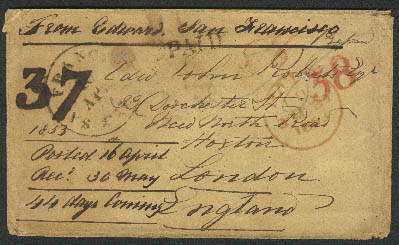 From Edward San Francisco
PAID
37
38
Edw John Roberts Esqr
39 Dorchester St
New North Road
Hoxton
London
England
1853
Posted 16 April
Recd 30 May
44 days Coming